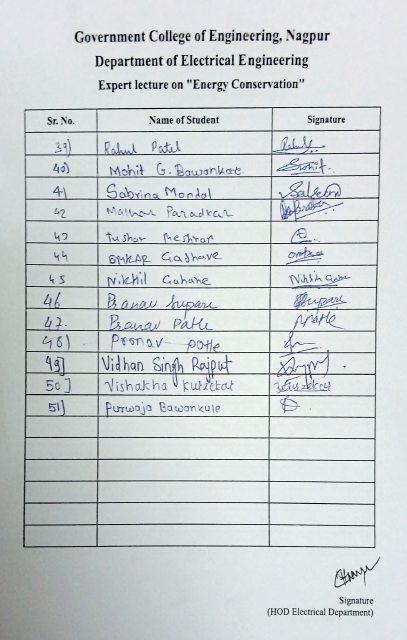 Government College of Engineering, Nagpur
Department of Electrical Engineering
Expert lecture on "Energy Conservation"
Sr. No. Name of Student Signature
39) Rahul Patel Rahul
40) Mohit G. Bawankat Mohit
41 Sabrina Mondal
42 Malhar Paradkar
43 Tushar Meshram
44 OMKAR Gadhave omkar
45 Nikhil Gahane
46 Pranav Supare Supare
47. Pranav Patle
48) Pronav Patle
49] Vidhan Singh Rajput
50] Vishakha
51] Purwaja Bawankule
Signature
(HOD Electrical Department)